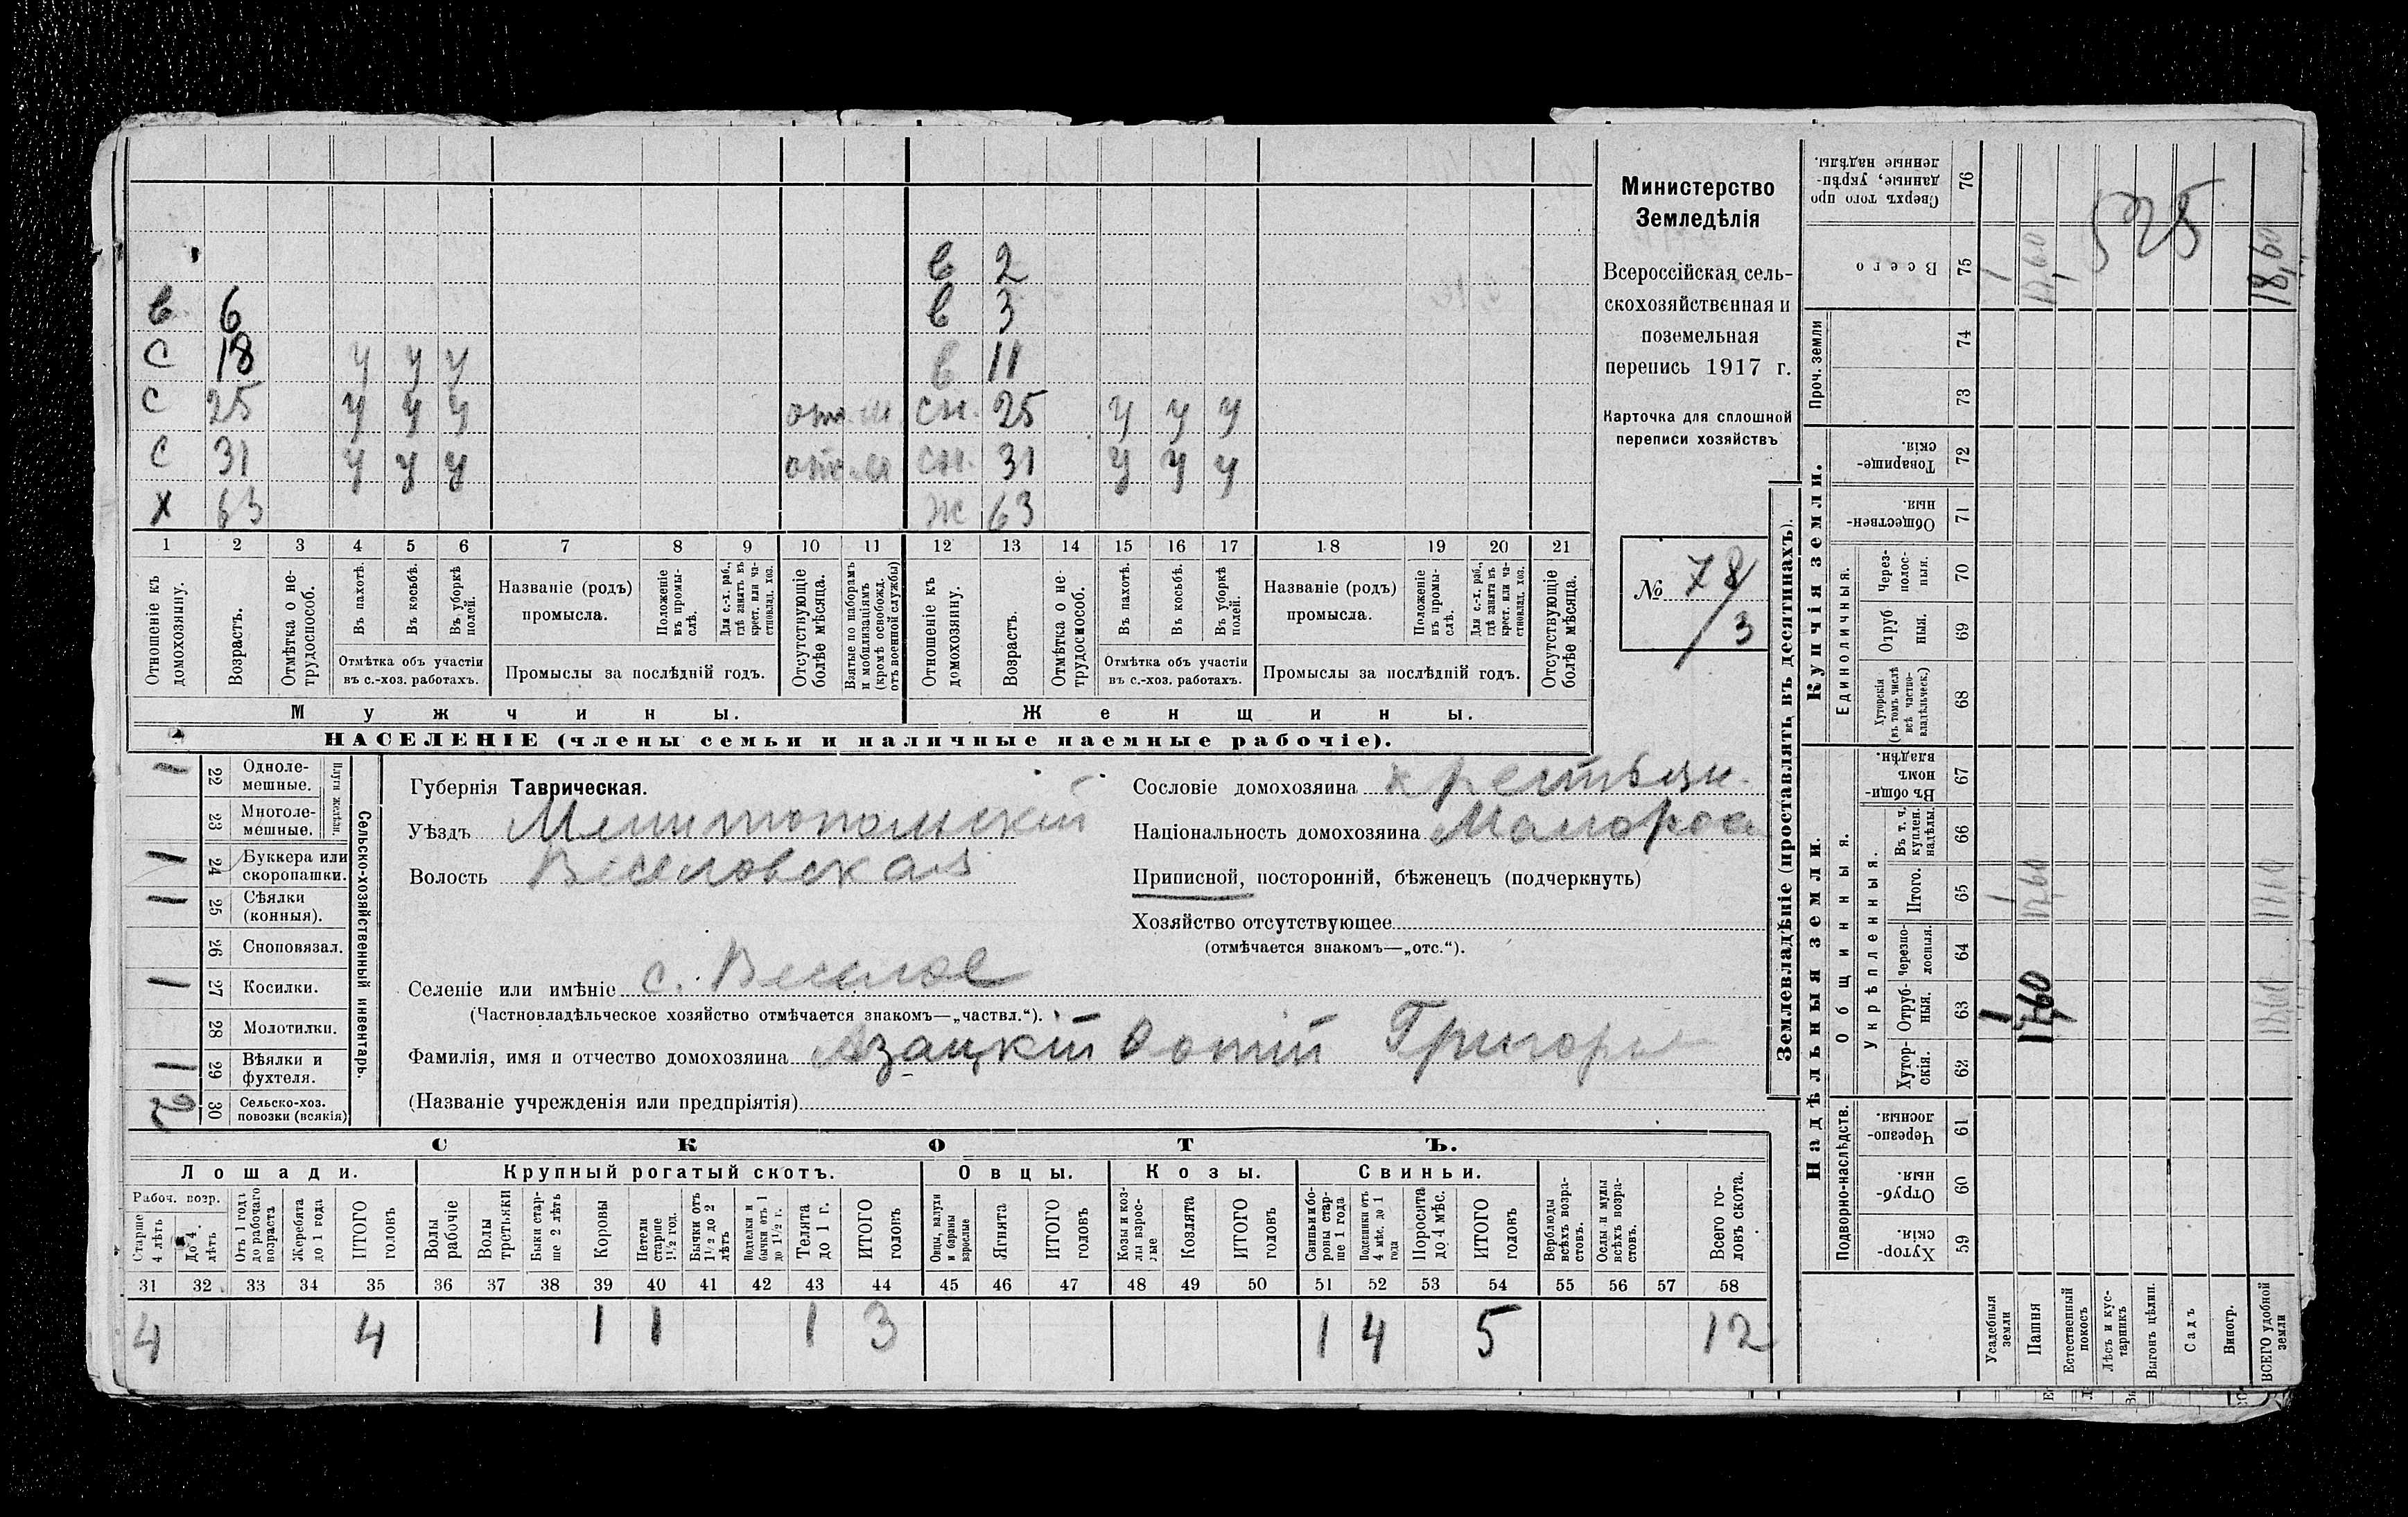 в 2
в. 6 в 3
с 18 у у у в 11
с 25 у у у отс. м сн. 25 у у у
с 31 у у у отс. м сн. 31 у у у
х 63 ж 63
1 2 3 4 5 6 7 8 9 10 11 12 13 14 15 16 17 18 19 20 21
Отношеніе къ домохозяину.
Возрастъ.
Отмѣтка о нетрудоспособ.
Въ пахотѣ.
Въ косьбѣ.
Въ уборкѣ полей.
Отмѣтка объ участіи
въ с.-хоз. работахъ.
Названіе (родъ)
промысла.
Положеніе въ промыслѣ.
Для с.-х. раб., гдѣ занятъ въ крест. или частновлад. хоз.
Промыслы за послѣдній годъ.
Отсутствующіе болѣе мѣсяца.
Взятые по наборамъ и мобилизаціямъ (кромѣ освобожд. отъ военной службы)
Отношеніе къ домохозяину.
Возрастъ.
Отмѣтка о нетрудоспособ.
Въ пахотѣ.
Въ косьбѣ.
Въ уборкѣ полей.
Отмѣтка объ участіи
въ с.-хоз. работахъ.
Названіе (родъ)
промысла.
Положеніе въ промыслѣ.
Для с.-х. раб., гдѣ занята въ крест. или частновлад. хоз.
Промыслы за послѣдній годъ.
Отсутствующіе болѣе мѣсяца.
Мужчины. Женщины.
НАСЕЛЕНІЕ (члены семьи и наличные наемные рабочіе).
Министерство
Земледѣлія
Всероссійская сель-
скохозяйственная и
поземельная
перепись 1917 г.
Карточка для сплошной
переписи хозяйствъ
№ 78
/3
Сельско-хозяйственный инвентарь.
Плуги желѣзн.
1 22 Одноле-
мешные.
23 Многоле-
мешные.
1 24 Буккера или
скоропашки.
1 25 Сѣялки
(конныя).
26 Сноповязал.
1 27 Косилки.
28 Молотилки.
1 29 Вѣялки и
фухтеля.
2 30 Сельско-хоз.
повозки (всякія)
Губернія Таврическая.
Уѣздъ Мелитопольскій
Волость Веселовская
Селеніе или имѣніе с. Веселое
(Частновладѣльческое хозяйство отмѣчается знакомъ—„частвл.“).
Фамилія, имя и отчество домохозяина Азацкій Фотій Григорье
(Названіе учрежденія или предпріятія)
Сословіе домохозяина крестьян.
Національность домохозяина Малорос
Приписной, посторонній, бѣженецъ (подчеркнуть)
Хозяйство отсутствующее
(отмѣчается знакомъ—„отс.“).
СКОТЪ.
Лошади. Крупный рогатый скотъ. Овцы. Козы. Свиньи.
Рабоч. возр.
Старше 4 лѣтъ
До 4 лѣтъ
Отъ 1 года до рабочаго возраста
Жеребята до 1 года
ИТОГО головъ
Волы рабочіе
Волы третьяки
Быки старше 2 лѣтъ
Коровы
Нетели старше 1½ год.
Бычки отъ 1½ до 2 лѣтъ
Подтелки и бычки отъ 1 до 1½ г.
Телята до 1 г.
ИТОГО головъ
Овцы, валухи и бараны взрослые
Ягнята
ИТОГО головъ
Козы и козлы взрослые
Козлята
ИТОГО головъ
Свиньи и боровы старше 1 года
Подсвинки отъ 4 мѣс. до 1 года
Поросята до 4 мѣс.
ИТОГО головъ
Верблюды всѣхъ возрастовъ.
Ослы и мулы всѣхъ возрастовъ.
Всего головъ скота.
31 32 33 34 35 36 37 38 39 40 41 42 43 44 45 46 47 48 49 50 51 52 53 54 55 56 57 58
4 4 1 1 1 3 1 4 5 12
Землевладѣніе (проставлять въ десятинахъ).
Надѣльныя земли. Купчія земли.
Проч. земли
Подворно-наслѣдств.
Общинныя.
Укрѣпленныя.
Единоличныя.
Сверхъ того проданные, укрѣпленные надѣлы. 76
Всего 75 1 17,60 18,60
525
74
73
Товарищескія. 72
Общественныя. 71
Черезполосныя. 70
Отрубныя. 69
Хуторскія (въ томъ числѣ всѣ частновладѣльческ.) 68
Въ общинномъ владѣн. 67
Въ т. ч. куплен. надѣлы. 66
Итого. 65 1 17,60
Черезполосныя. 64
Отрубныя. 63 1 17,60
Хуторскія. 62
Черезполосныя. 61
Отрубныя. 60
Хуторскія. 59
Усадебныя земли
Пашня
Естественный покосъ
Лѣсъ и кустарникъ
Выгонъ цѣлин.
Садъ
Виногр.
ВСЕГО удобной земли